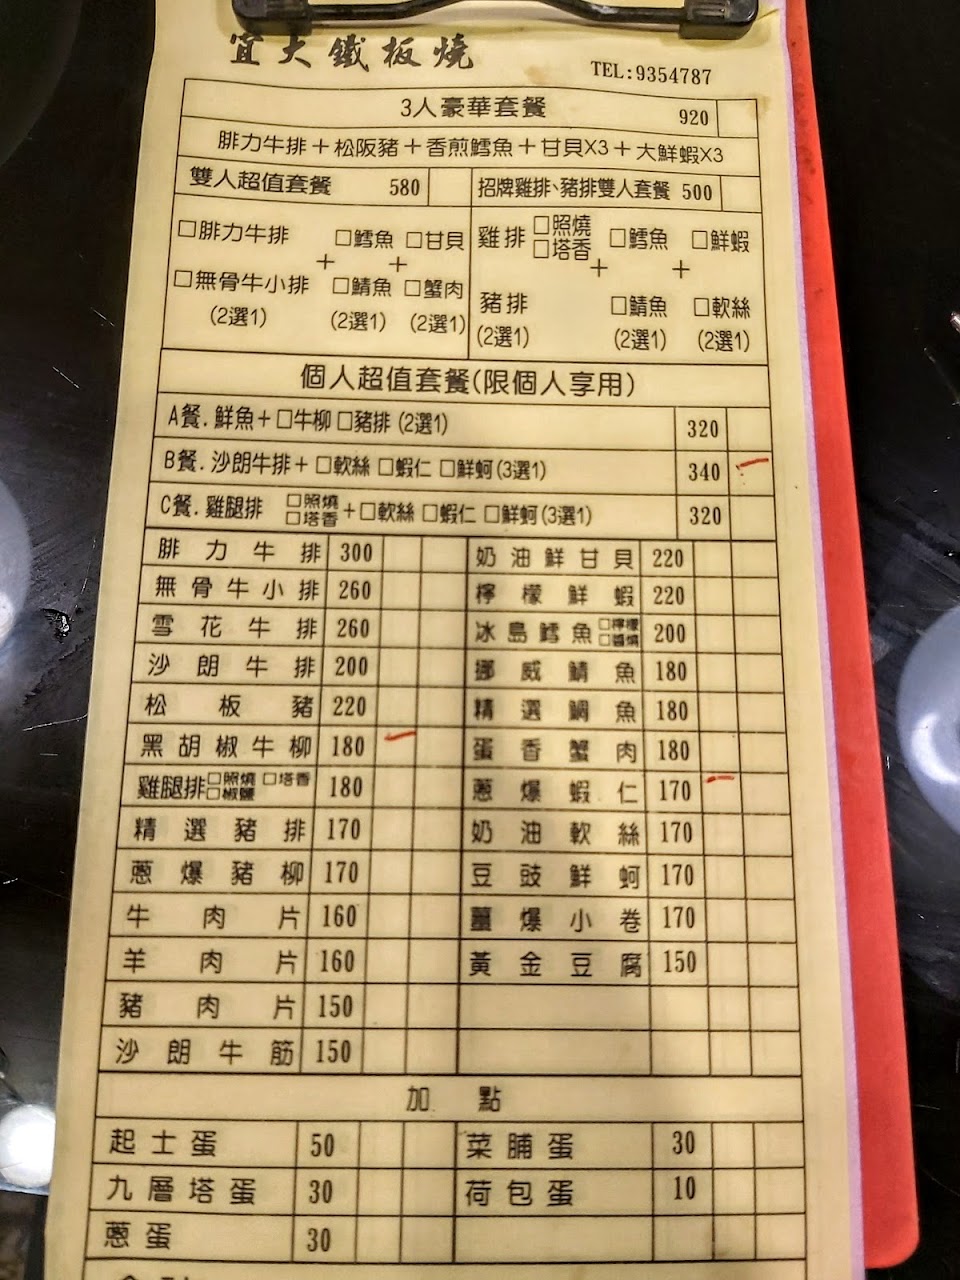 宜大鐵板燒
TEL:9354787
3人豪華套餐 920
腓力牛排＋松阪豬＋香煎鱈魚＋甘貝X3＋大鮮蝦X3
雙人超值套餐 580 招牌雞排、豬排雙人套餐 500
□腓力牛排 □鱈魚 □甘貝 雞排 □照燒 □塔香 □鱈魚 □鮮蝦
＋ ＋ ＋ ＋
□無骨牛小排 □鯖魚 □蟹肉 豬排 □鯖魚 □軟絲
(2選1) (2選1) (2選1) (2選1) (2選1) (2選1)
個人超值套餐(限個人享用)
A餐.鮮魚+□牛柳 □豬排 (2選1) 320
B餐.沙朗牛排+□軟絲 □蝦仁 □鮮蚵(3選1) 340
C餐.雞腿排 □照燒 □塔香 +□軟絲 □蝦仁 □鮮蚵(3選1) 320
腓力牛排 300 奶油鮮甘貝 220
無骨牛小排 260 檸檬鮮蝦 220
雪花牛排 260 冰島鱈魚 □檸檬 □醬燒 200
沙朗牛排 200 挪威鯖魚 180
松板豬 220 精選鯛魚 180
黑胡椒牛柳 180 蛋香蟹肉 180
雞腿排 □照燒 □塔香 □椒鹽 180 蔥爆蝦仁 170
精選豬排 170 奶油軟絲 170
蔥爆豬柳 170 豆豉鮮蚵 170
牛肉片 160 薑爆小卷 170
羊肉片 160 黃金豆腐 150
豬肉片 150
沙朗牛筋 150
加點
起士蛋 50 菜脯蛋 30
九層塔蛋 30 荷包蛋 10
蔥蛋 30